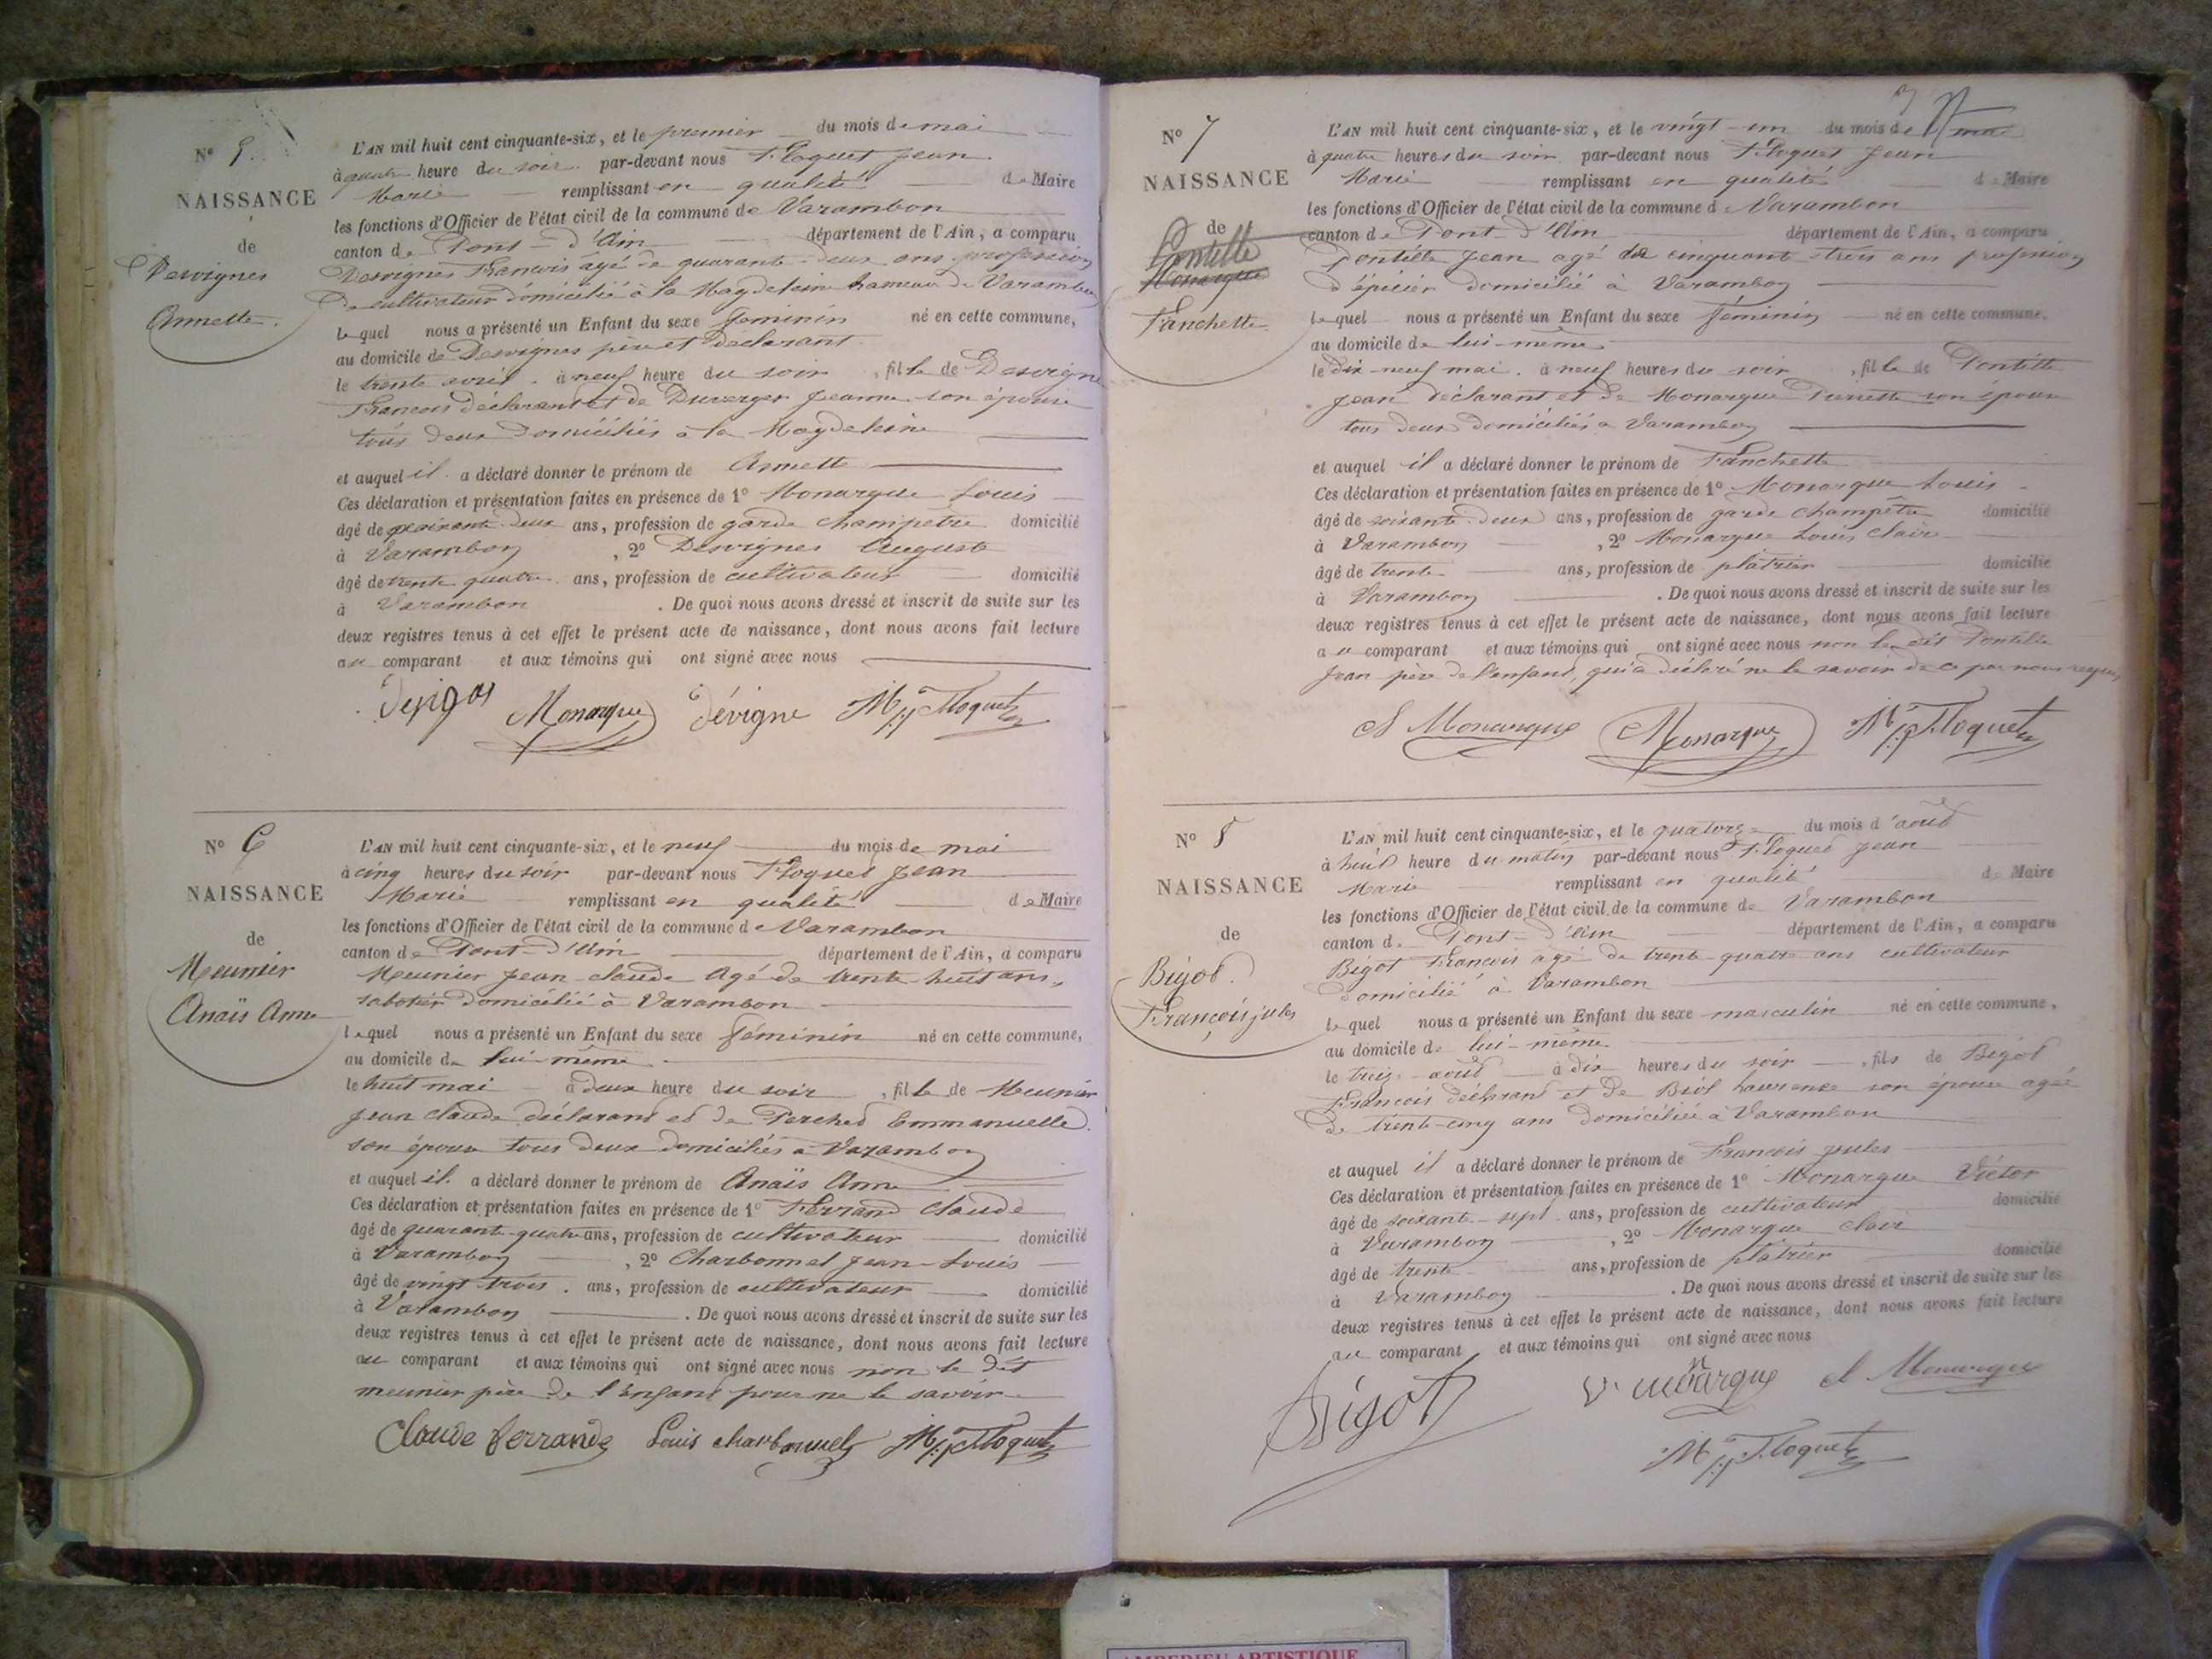 N° 5.
NAISSANCE
de
Desvignes
Annette.
L'AN mil huit cent cinquante-six, et le premier du mois de mai
à quatre heure du soir par-devant nous Floquet Jean
Marie remplissant en qualité de Maire
les fonctions d'Officier de l'état civil de la commune de Varambon
canton de Pont-d'Ain département de l'Ain, a comparu
Desvignes François âgé de quarante-deux ans profession
de cultivateur domicilié à la Magdeleine hameau de Varambon
lequel nous a présenté un Enfant du sexe féminin né en cette commune,
au domicile de Desvignes père et déclarant
le trente avril à neuf heure du soir, fille de Desvignes
François déclarant et de Duverger Jeanne son épouse
tous deux domiciliés à la Magdeleine
et auquel il a déclaré donner le prénom de Annette
Ces déclaration et présentation faites en présence de 1° Monarque Louis
âgé de soixante-deux ans, profession de garde champêtre domicilié
à Varambon, 2° Desvignes Auguste
âgé de trente quatre ans, profession de cultivateur domicilié
à Varambon. De quoi nous avons dressé et inscrit de suite sur les
deux registres tenus à cet effet le présent acte de naissance, dont nous avons fait lecture
au comparant et aux témoins qui ont signé avec nous
Monarque dévigne Floquet
N° 6
NAISSANCE
de
Meunier
Anaïs Anne
L'AN mil huit cent cinquante-six, et le neuf du mois de mai
à cinq heures du soir par-devant nous Floquet Jean
Marie remplissant en qualité de Maire
les fonctions d'Officier de l'état civil de la commune de Varambon
canton de Pont-d'Ain département de l'Ain, a comparu
Meunier Jean claude Agé de trente-huit ans,
sabotier domicilié à Varambon
lequel nous a présenté un Enfant du sexe féminin né en cette commune,
au domicile de lui-même
le huit mai à deux heure du soir, fille de Meunier
Jean claude déclarant et de Perched Emmanuelle
son épouse tous deux domiciliés à Varambon
et auquel il a déclaré donner le prénom de Anaïs Anne
Ces déclaration et présentation faites en présence de 1° Ferrand Claude
âgé de quarante-quatre ans, profession de cultivateur domicilié
à Varambon, 2° Charbonnel Jean-Louis
âgé de vingt trois. ans, profession de cultivateur domicilié
à Varambon. De quoi nous avons dressé et inscrit de suite sur les
deux registres tenus à cet effet le présent acte de naissance, dont nous avons fait lecture
au comparant et aux témoins qui ont signé avec nous non le dit
meunier père de l'enfant pour ne le savoir
Claude ferrande Louis charbonnel Floquet
N° 7
NAISSANCE
de
Pontille
Monarque
Fanchette
L'AN mil huit cent cinquante-six, et le vingt-un du mois de mai
à quatre heures du soir par-devant nous Floquet Jean
Marie remplissant en qualité de Maire
les fonctions d'Officier de l'état civil de la commune d Varambon
canton de Pont-d'Ain département de l'Ain, a comparu
Pontille Jean agé de cinquante trois ans profession
d'épicier domicilié à Varambon
lequel nous a présenté un Enfant du sexe féminin né en cette commune,
au domicile de lui-même
le dix-neuf mai. à neuf heures du soir, fille de Pontille
Jean déclarant et de Monarque Pierrette son épouse
tous deux domiciliés à Varambon
et auquel il a déclaré donner le prénom de Fanchette
Ces déclaration et présentation faites en présence de 1° Monarque Louis
âgé de soixante-deux ans, profession de garde champêtre domicilié
à Varambon, 2° Monarque Louis Clair
âgé de trente ans, profession de plâtrier domicilié
à Varambon. De quoi nous avons dressé et inscrit de suite sur les
deux registres tenus à cet effet le présent acte de naissance, dont nous avons fait lecture
au comparant et aux témoins qui ont signé avec nous non le dit Pontille
Jean père de l'enfant, qui a déclaré ne le savoir de ce par nous requis
Monarque Monarque Floquet
N° 8
NAISSANCE
de
Bigot.
François jules
L'AN mil huit cent cinquante-six, et le quatorze du mois d'août
à huit heure du matin par-devant nous Floquet Jean
Marie remplissant en qualité de Maire
les fonctions d'Officier de l'état civil de la commune de Varambon
canton de Pont-d'Ain département de l'Ain, a comparu
Bigot François agé de trente quatre ans cultivateur
domicilié à Varambon
lequel nous a présenté un Enfant du sexe masculin né en cette commune,
au domicile de lui-même
le treize août à dix heures du soir, fils de Bigot
François déclarant et de Laurence son épouse agée
de trente-cinq ans domiciliée à Varambon
et auquel il a déclaré donner le prénom de François jules
Ces déclaration et présentation faites en présence de 1° Monarque Victor
âgé de soixante-sept ans, profession de cultivateur domicilié
à Varambon, 2° Monarque Clair
âgé de trente ans, profession de plâtrier domicilié
à Varambon. De quoi nous avons dressé et inscrit de suite sur les
deux registres tenus à cet effet le présent acte de naissance, dont nous avons fait lecture
au comparant et aux témoins qui ont signé avec nous
Bigot Monarque
Floquet
AMBERIEU ARTISTIQUE